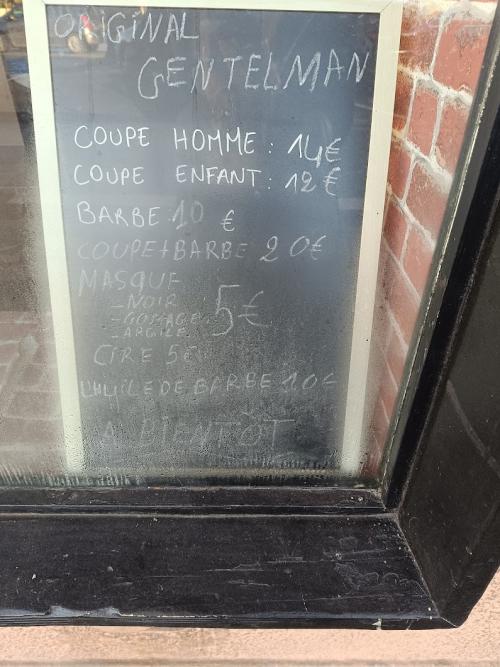 ORIGINAL
GENTELMAN
COUPE HOMME : 14€
COUPE ENFANT : 12€
BARBE 10 €
COUPE+BARBE 20€
MASQUE
-NOIR
-GOMAGE 5€
-ARGILE
CIRE 5€
L'HUILE DE BARBE 10€
A BIENTÔT